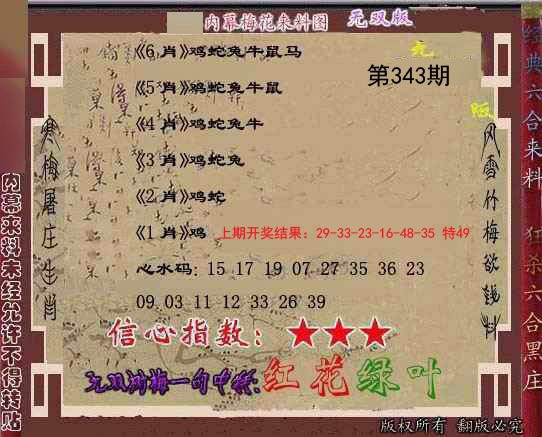 内幕梅花来料图 无双版
《6 肖》鸡蛇兔牛鼠马
无
第343期
《5 肖》鸡蛇兔牛鼠
版
《4 肖》鸡蛇兔牛
《3 肖》鸡蛇兔
《2 肖》鸡蛇
《1 肖》鸡 上期开奖结果：29-33-23-16-48-35 特49
心水码: 15 17 19 07 27 35 36 23
09 03 11 12 33 26 39
信心指数：★★★
一句中特:红花绿叶
寒梅屠庄生肖
风雪竹梅欲钱料
内幕来料未经允许不得转贴
经典六合来料 狂杀六合黑庄
版权所有 翻版必究